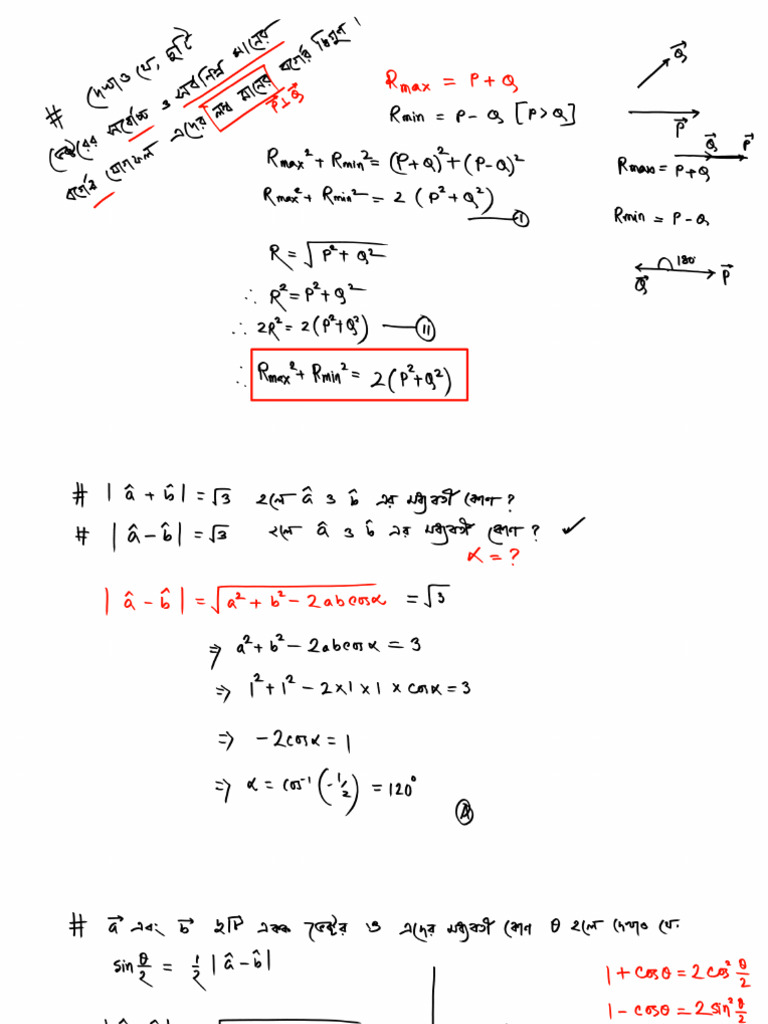 # দেখাও যে, দুটি
ভেক্টরের সর্বোচ্চ ও সর্বনিম্ন মানের
বর্গের যোগফল এদের লব্ধ মানের বর্গের দ্বিগুণ।
P⃗⊥Q⃗
R_max = P + Q
R_min = P - Q [P > Q]
R_max² + R_min² = (P+Q)² + (P-Q)²
R_max² + R_min² = 2 (P² + Q²) — (I)
R = √(P² + Q²)
∴ R² = P² + Q²
∴ 2R² = 2 (P² + Q²) — (II)
∴ R_max² + R_min² = 2 (P² + Q²)
Q⃗
P⃗
Q⃗ P⃗
R_max = P + Q
R_min = P - Q
180°
Q⃗ P⃗
# |â + b̂| = √3 হলে â ও b̂ এর মধ্যবর্তী কোণ ?
# |â - b̂| = √3 হলে â ও b̂ এর মধ্যবর্তী কোণ ? ✓
α = ?
|â - b̂| = √(a² + b² - 2ab cosα) = √3
⇒ a² + b² - 2ab cosα = 3
⇒ 1² + 1² - 2×1×1×cosα = 3
⇒ -2cosα = 1
⇒ α = cos⁻¹(-1/2) = 120°
# a⃗ এবং b⃗ দুটি একক ভেক্টর ও এদের মধ্যবর্তী কোণ θ হলে দেখাও যে.
sin θ/2 = 1/2 |â - b̂|
1 + cosθ = 2cos² θ/2
1 - cosθ = 2sin² θ/2